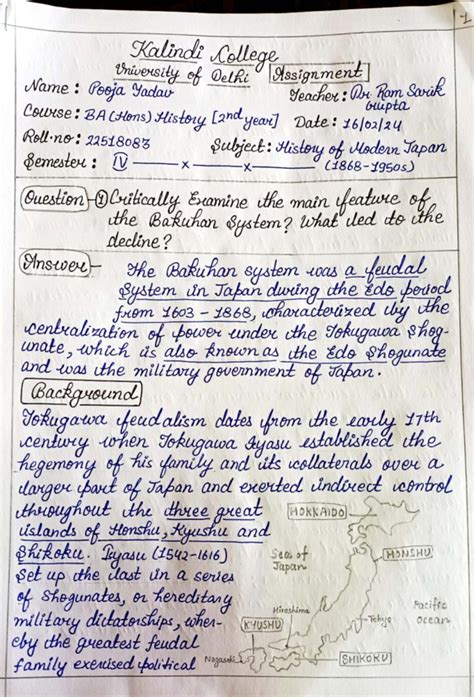 1
Kalindi College
University of Delhi Assignment
Name : Pooja Yadav Teacher : Dr. Ram Sarik Gupta
Course : BA (Hons) History [2nd year] Date : 16/02/24
Roll.no : 22518083 Subject : History of Modern Japan
Semester : IV x x (1868-1950s)
Question - 1 Critically Examine the main feature of
the Bakuhan System? What led to the
decline?
Answer - The Bakuhan system was a feudal
System in Japan during the Edo period
from 1603 - 1868, characterized by the
centralization of power under the Tokugawa Shog-
unate, which is also known as the Edo Shogunate
and was the military government of Japan.
Background
Tokugawa feudalism dates from the early 17th
century when Tokugawa Iyasu established the
hegemony of his family and its collaterals over a
larger part of Japan and exerted indirect control
throughout the three great
islands of Honshu, Kyushu and
Shikoku. Iyasu (1542-1616)
Set up the last in a series
of Shogunates, or hereditary
military dictatorships, wher-
eby the greatest feudal
family exercised political
HOKKAIDO
Sea of
Japan
HONSHU
Hiroshima
Tokyo
Pacific
Ocean
KYUSHU
Nagasaki
SHIKOKU